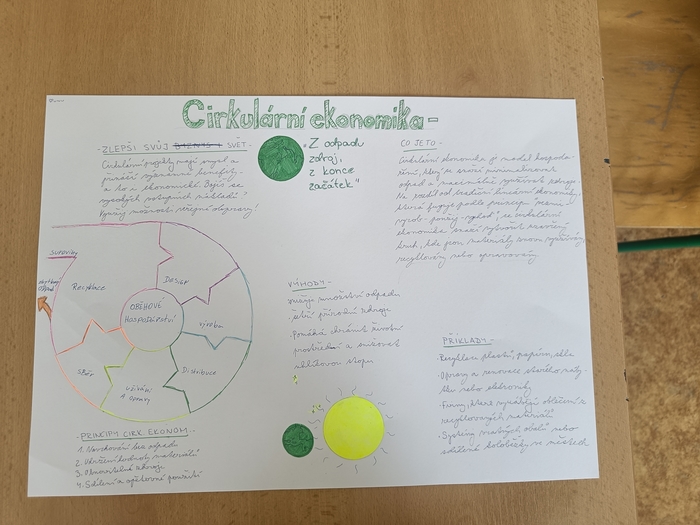 Cirkulární ekonomika -
- ZLEPŠI SVŮJ BIZNIS I SVĚT -
Cirkulární projekty mají smysl a
přináší významné benefity -
a to i ekonomické. Bojíš se
vysokých vstupních nákladů?
Využij možnosti veřejné podpory!
"Z odpadu
zdroj,
z konce
začátek"
CO JE TO -
Cirkulární ekonomika je model hospoda-
ření, který se snaží minimalizovat
odpad a maximálně využívat zdroje.
Na rozdíl od tradiční lineární ekonomiky,
která funguje podle principu "vezmi -
vyrob - použij - vyhoď", se cirkulární
ekonomika snaží vytvořit uzavřený
kruh, kde jsou materiály znovu využívány,
recyklovány nebo opravovány.
suroviny
Recyklace
DESIGN
výroba
Distribuce
UŽÍVÁNÍ
A opravy
SBĚR
OBĚHOVÉ
HOSPODÁŘSTVÍ
odpad
VÝHODY -
snižuje množství odpadu
šetří přírodní zdroje
Pomáhá chránit životní
prostředí a snižovat
uhlíkovou stopu
- PRINCIPY CIRK. EKONOM. -
1. Navrhování bez odpadu
2. Udržení hodnoty materiálů
3. Obnovitelné zdroje
4. Sdílení a opětovné použití
PŘÍKLADY -
· Recyklace plastů, papíru, skla
· Opravy a renovace starého náby-
tku nebo elektroniky
· Firmy, které vyrábějí oblečení z
recyklovaných materiálů
· Systémy vratných obalů nebo
sdílené koloběžky ve městech